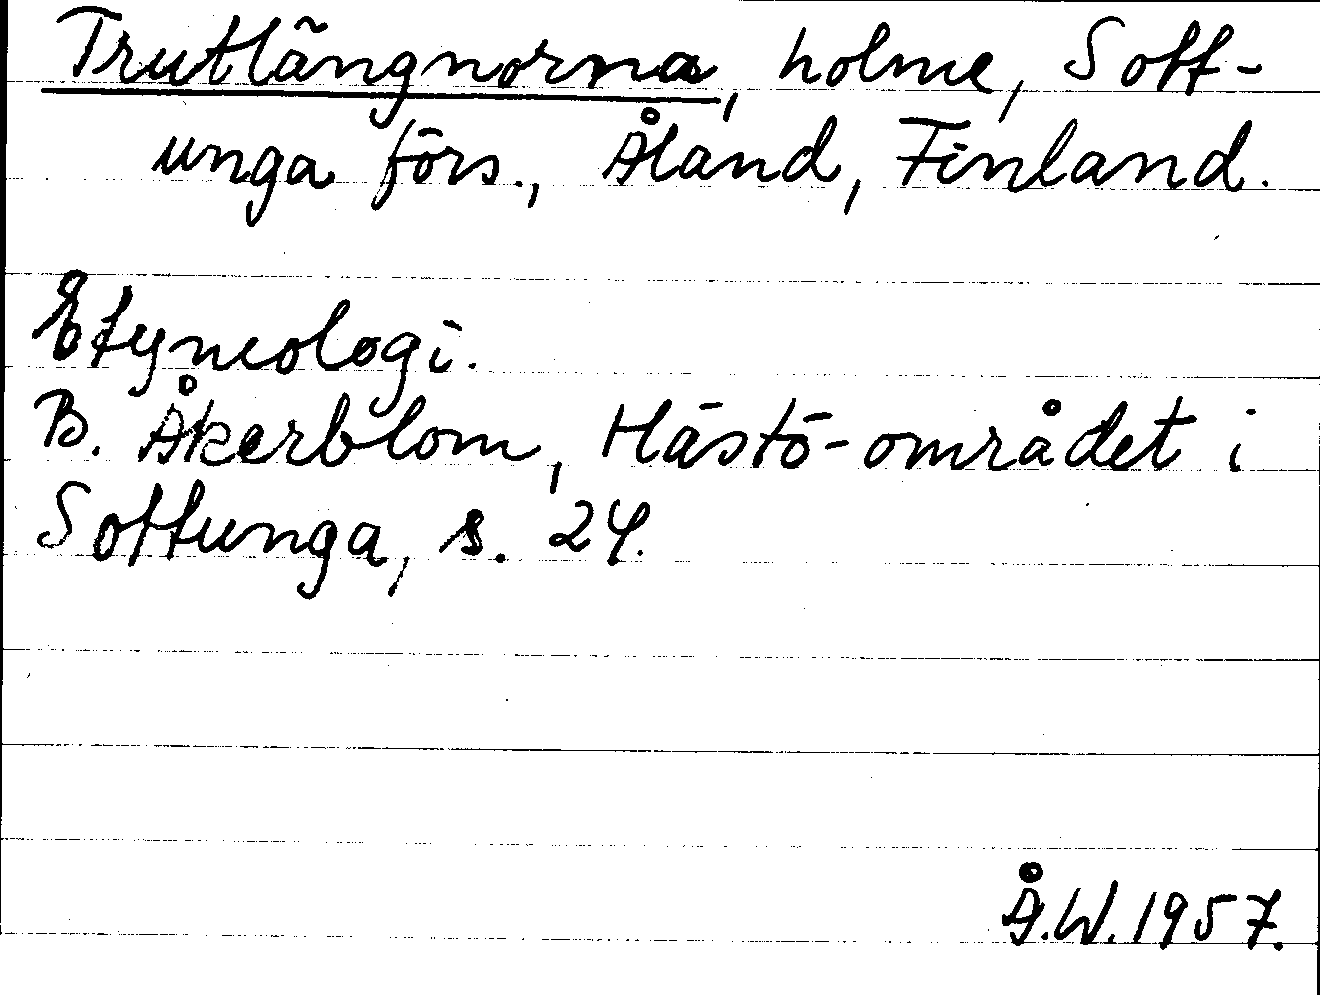 Trutlängnorna, holme, Sott-
unga förs., Åland, Finland.
Etymologi.
B. Åkerblom, Hästö-området i
Sottunga, s. 24.
Å.W. 1957.